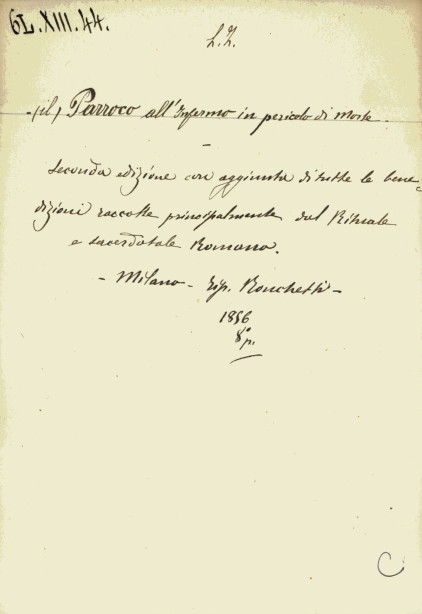 6L.XIII.44.
L.Z.
(il) Parroco all'Infermo in pericolo di morte.
–
Seconda edizione con aggiunta di tutte le bene-
dizioni raccolte principalmente dal Rituale
e sacerdotale Romano.
– Milano – Tip. Ronchetti –
1856
8° p.
C